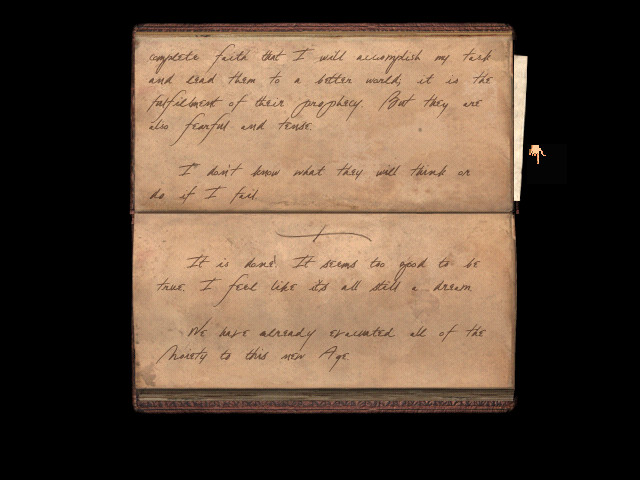 complete faith that I will accomplish my task
and lead them to a better world; it is the
fulfillment of their prophecy. But they are
also fearful and tense.
I don't know what they will think or
do if I fail.
It is done. It seems too good to be
true. I feel like it's all still a dream.
We have already evacuated all of the
Moiety to this new Age.